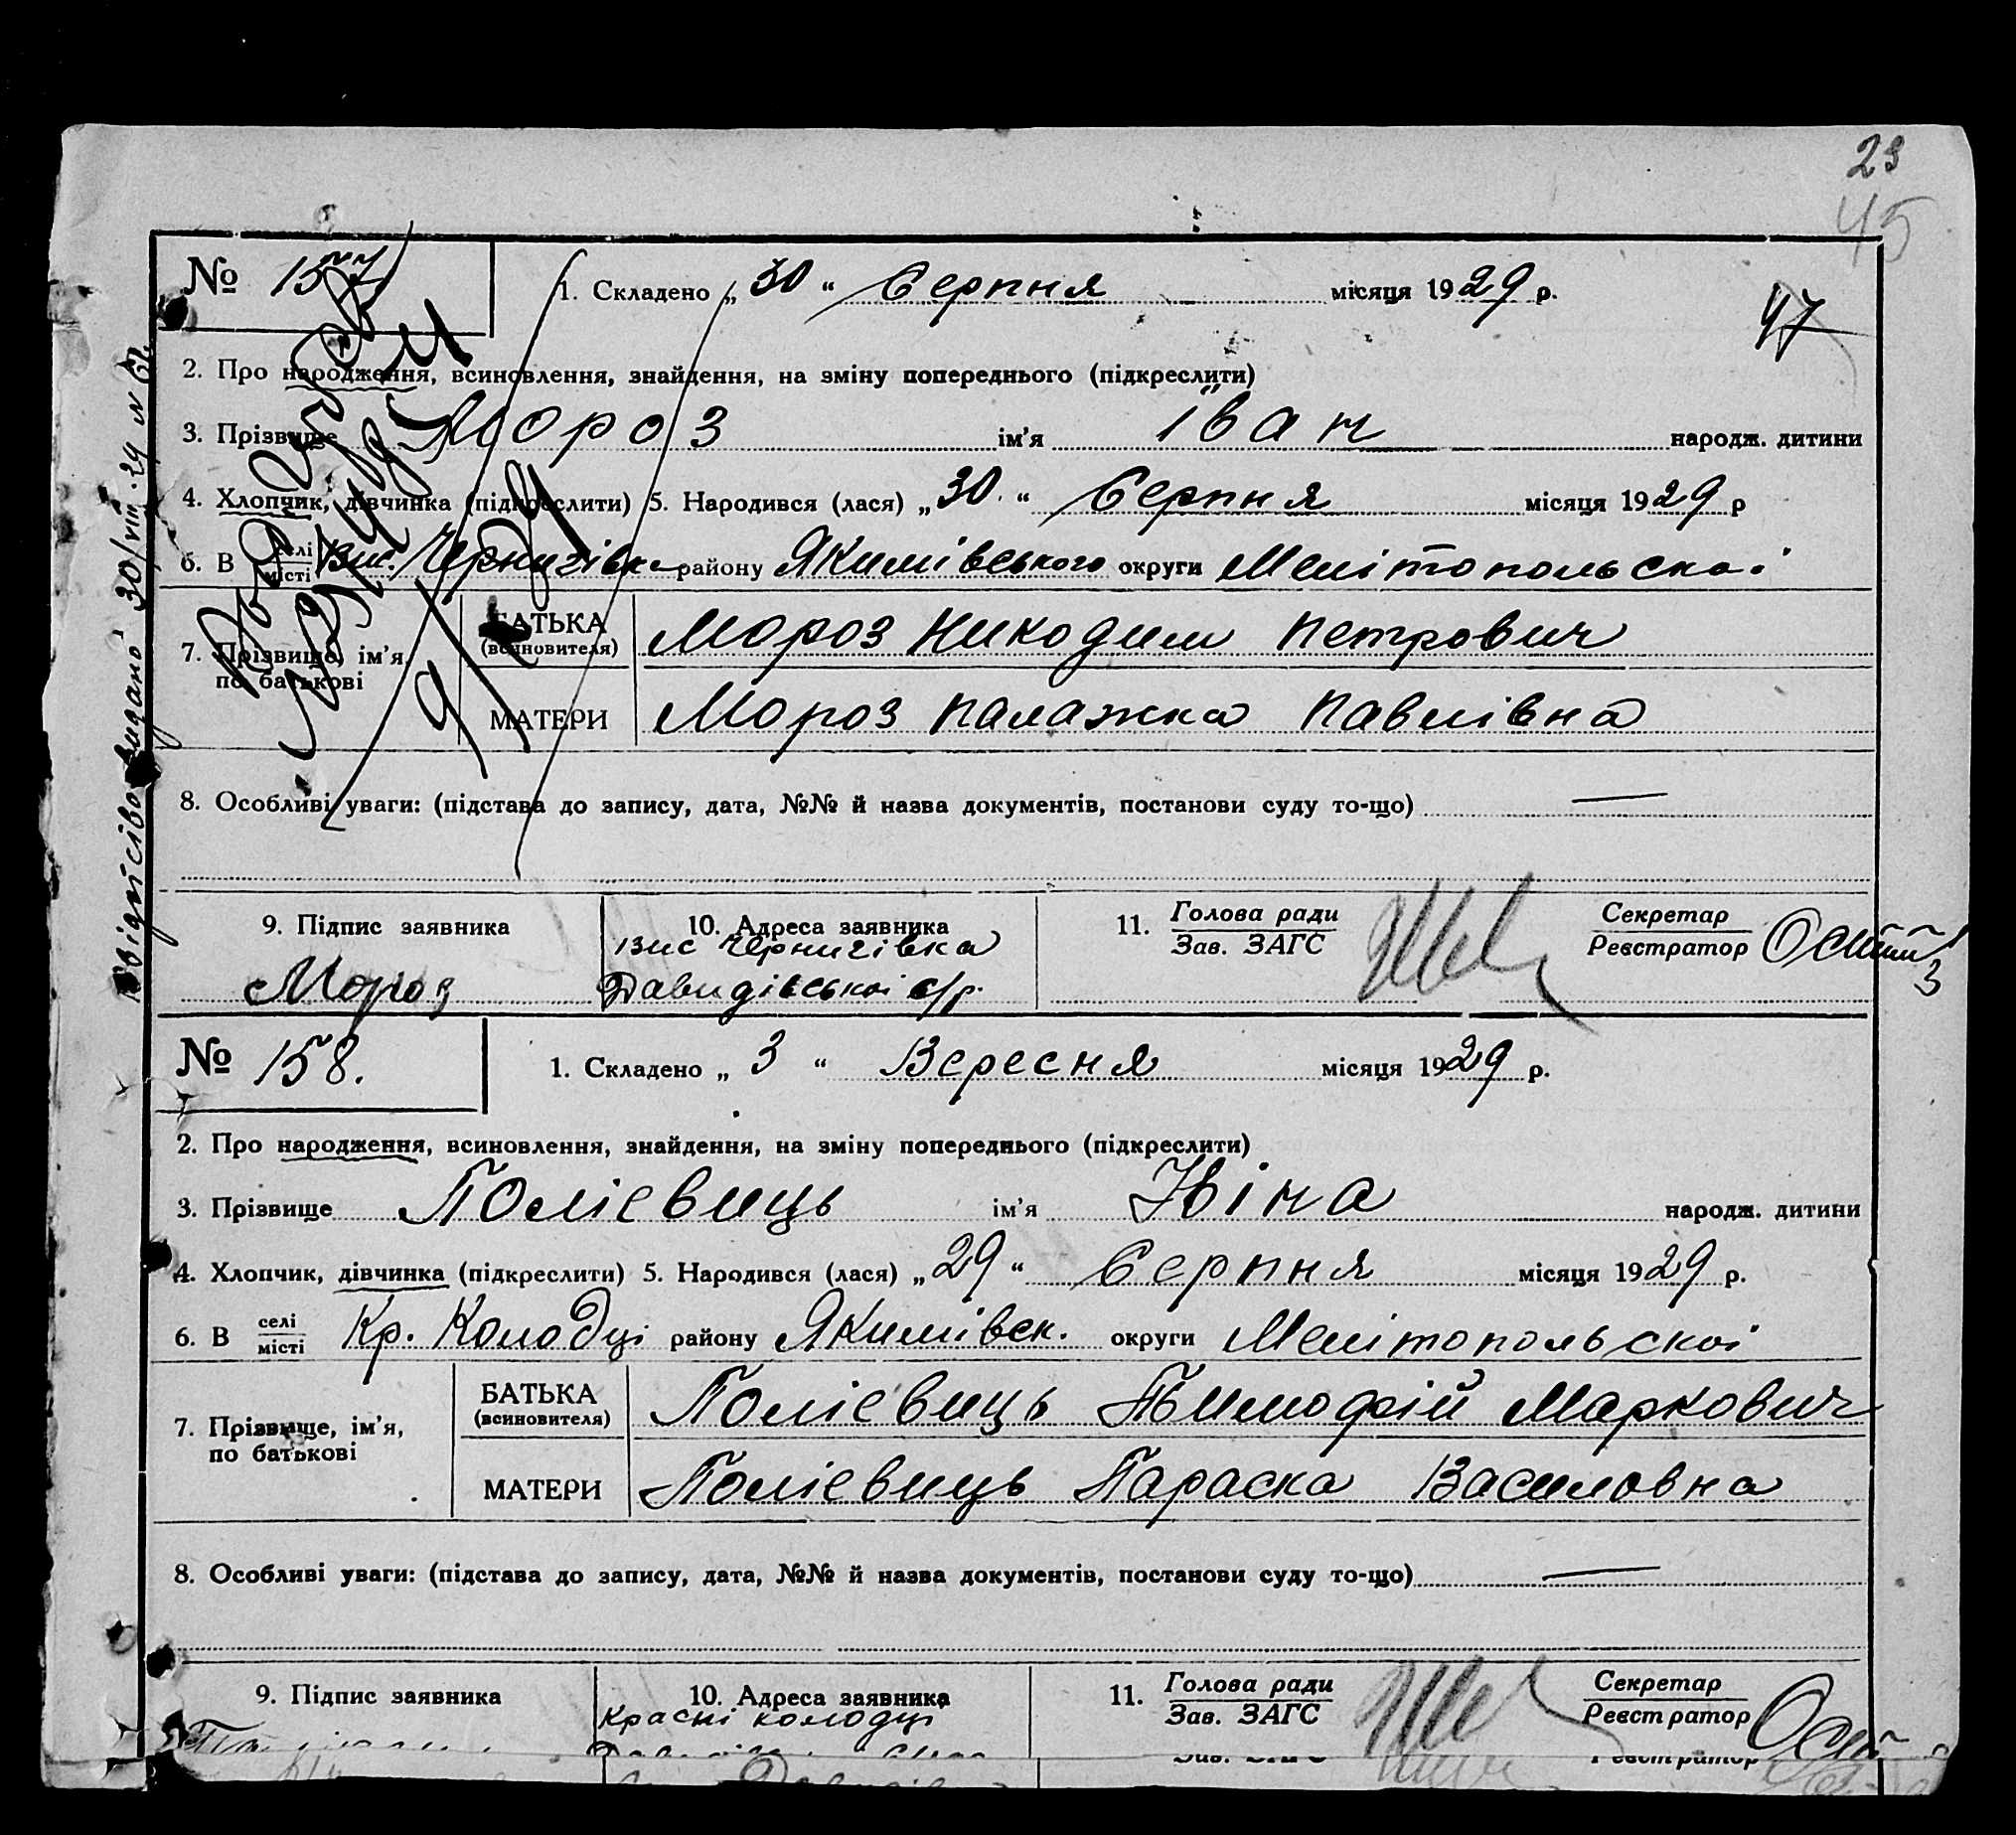 23
45
№ 157
1. Складено „ 30 “ Серпня місяця 1929 р.
47
2. Про народження, всиновлення, знайдення, на зміну попереднього (підкреслити)
3. Прізвище Мороз ім'я Іван народж. дитини
4. Хлопчик, дівчинка (підкреслити) 5. Народився (лася) „ 30 “ Серпня місяця 1929 р
6. В селі місті Вис. Чернигівка району Якимівського округи Мелітопольскоі
7. Прізвище, ім'я, по батькові
БАТЬКА (всиновителя) Мороз Никодим Петрович
МАТЕРИ Мороз Палажка Павлівна
8. Особливі уваги: (підстава до запису, дата, №№ й назва документів, постанови суду то-що) —
9. Підпис заявника
Мороз
10. Адреса заявника
вис Чернигівка
Давидівськоі с/р.
11. Голова ради Зав. ЗАГС
Секретар Реєстратор
видано 30/VIII.29
№ 158.
1. Складено „ 3 “ Вересня місяця 1929 р.
2. Про народження, всиновлення, знайдення, на зміну попереднього (підкреслити)
3. Прізвище Полієвиць ім'я Ніна народж. дитини
4. Хлопчик, дівчинка (підкреслити) 5. Народився (лася) „ 29 “ Серпня місяця 1929 р.
6. В селі місті Кр. Колодці району Якимівск. округи Мелітопольскоі
7. Прізвище, ім'я, по батькові
БАТЬКА (всиновителя) Полієвиць Тимофій Маркович
МАТЕРИ Полієвиць Параска Василовна
8. Особливі уваги: (підстава до запису, дата, №№ й назва документів, постанови суду то-що) —
9. Підпис заявника
10. Адреса заявника
Красні колодці
11. Голова ради Зав. ЗАГС
Секретар Реєстратор